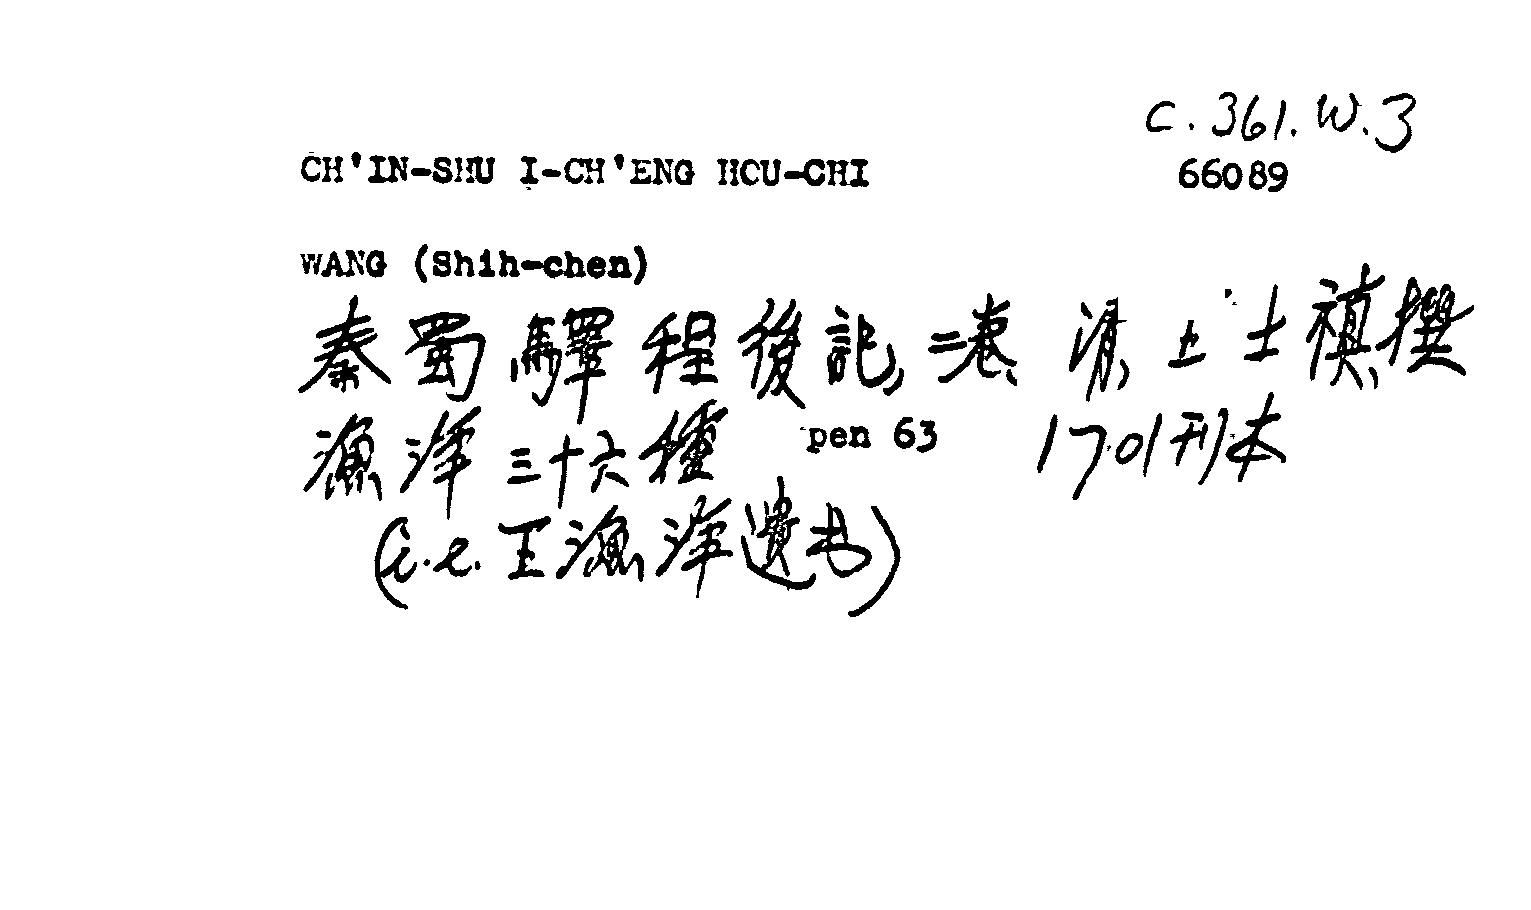 C.361.W.3
CH'IN-SHU I-CH'ENG HOU-CHI 66089
WANG (Shih-chen)
秦蜀驛程後記 二卷 清 王士禛撰
漁洋三十六種 pen 63 1701刊本
(i.e. 王漁洋遺书)